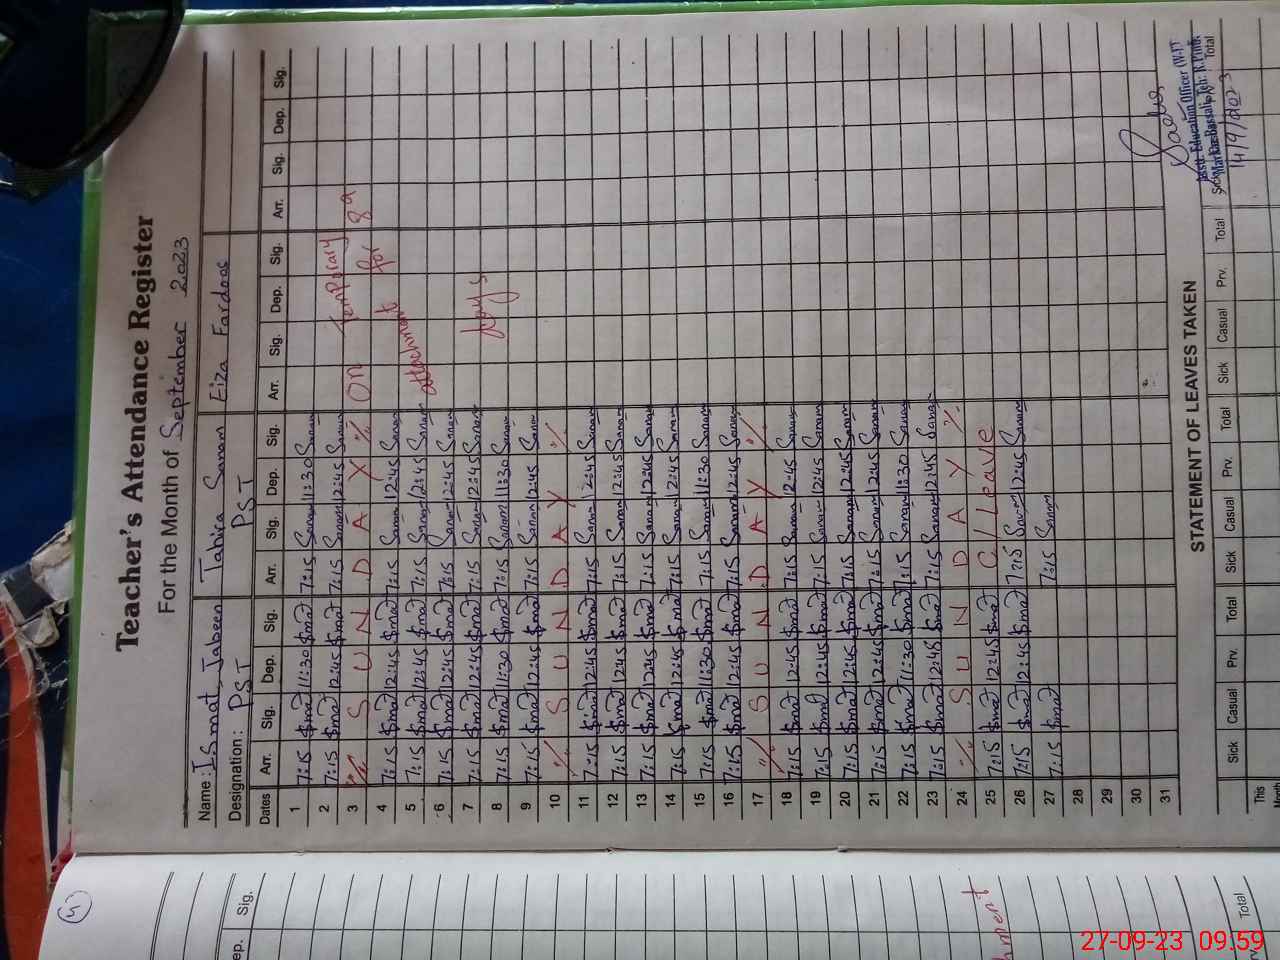 Teacher's Attendance Register
For the Month of September 2023
Name: Ismat Jabeen Tahira Sanam Eiza Fardoos
Designation: PST PST
Dates Arr. Sig. Dep. Sig. Arr. Sig. Dep. Sig. Arr. Sig. Dep. Sig. Arr. Sig. Dep. Sig.
1 7:15 11:30 7:15 Sanam 11:30 Sanam
2 7:15 12:45 7:15 Sanam 12:45 Sanam
3 SUNDAY
4 7:15 12:45 7:15 Sanam 12:45 Sanam
5 7:15 12:45 7:15 Sanam 12:45 Sanam
6 7:15 12:45 7:15 Sanam 12:45 Sanam
7 7:15 12:45 7:15 Sanam 12:45 Sanam
8 7:15 11:30 7:15 Sanam 11:30 Sanam
9 7:15 12:45 7:15 Sanam 12:45 Sanam
10 SUNDAY
11 7:15 12:45 7:15 Sanam 12:45 Sanam
12 7:15 12:45 7:15 Sanam 12:45 Sanam
13 7:15 12:45 7:15 Sanam 12:45 Sanam
14 7:15 12:45 7:15 Sanam 12:45 Sanam
15 7:15 11:30 7:15 Sanam 11:30 Sanam
16 7:15 12:45 7:15 Sanam 12:45 Sanam
17 SUNDAY
18 7:15 12:45 7:15 Sanam 12:45 Sanam
19 7:15 12:45 7:15 Sanam 12:45 Sanam
20 7:15 12:45 7:15 Sanam 12:45 Sanam
21 7:15 12:45 7:15 Sanam 12:45 Sanam
22 7:15 11:30 7:15 Sanam 11:30 Sanam
23 7:15 12:45 7:15 Sanam 12:45 Sanam
24 SUNDAY
25 7:15 12:45 C/Leave
26 7:15 12:45 7:15 Sanam 12:45 Sanam
27 7:15 7:15 Sanam
28
29
30
31
On Temporary
attachment for 89
days
STATEMENT OF LEAVES TAKEN
Sick Casual Prv. Total Sick Casual Prv. Total Sick Casual Prv. Total Sick Total
This
Month
Asstt. Education Officer (W-I)
Markaz Bassali, Teh: R.Pindi
14/9/2023
Sig.
ep.
hment
Total
27-09-23 09:59